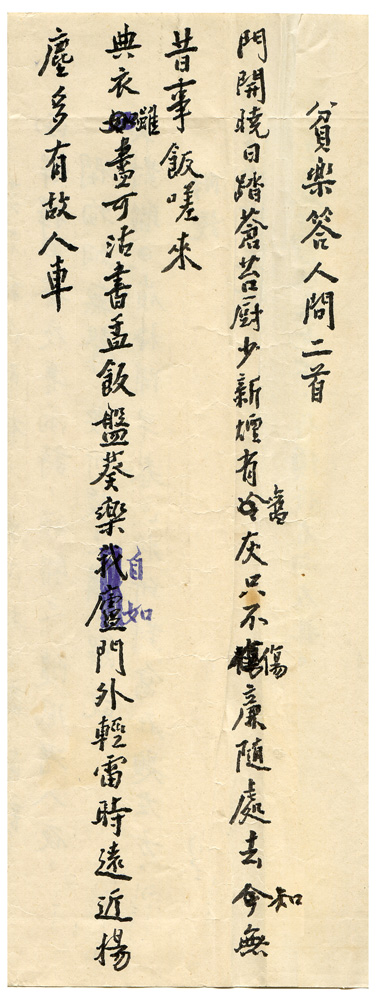 貧樂答人問二首
門開曉日踏蒼苔厨少新煙有冷舊灰只不傷廉隨處去今知無
昔事飯嗟來
典衣如雖盡可沽書盂飯盤葵樂我廬自如門外輕雷時遠近揚
塵多有故人車